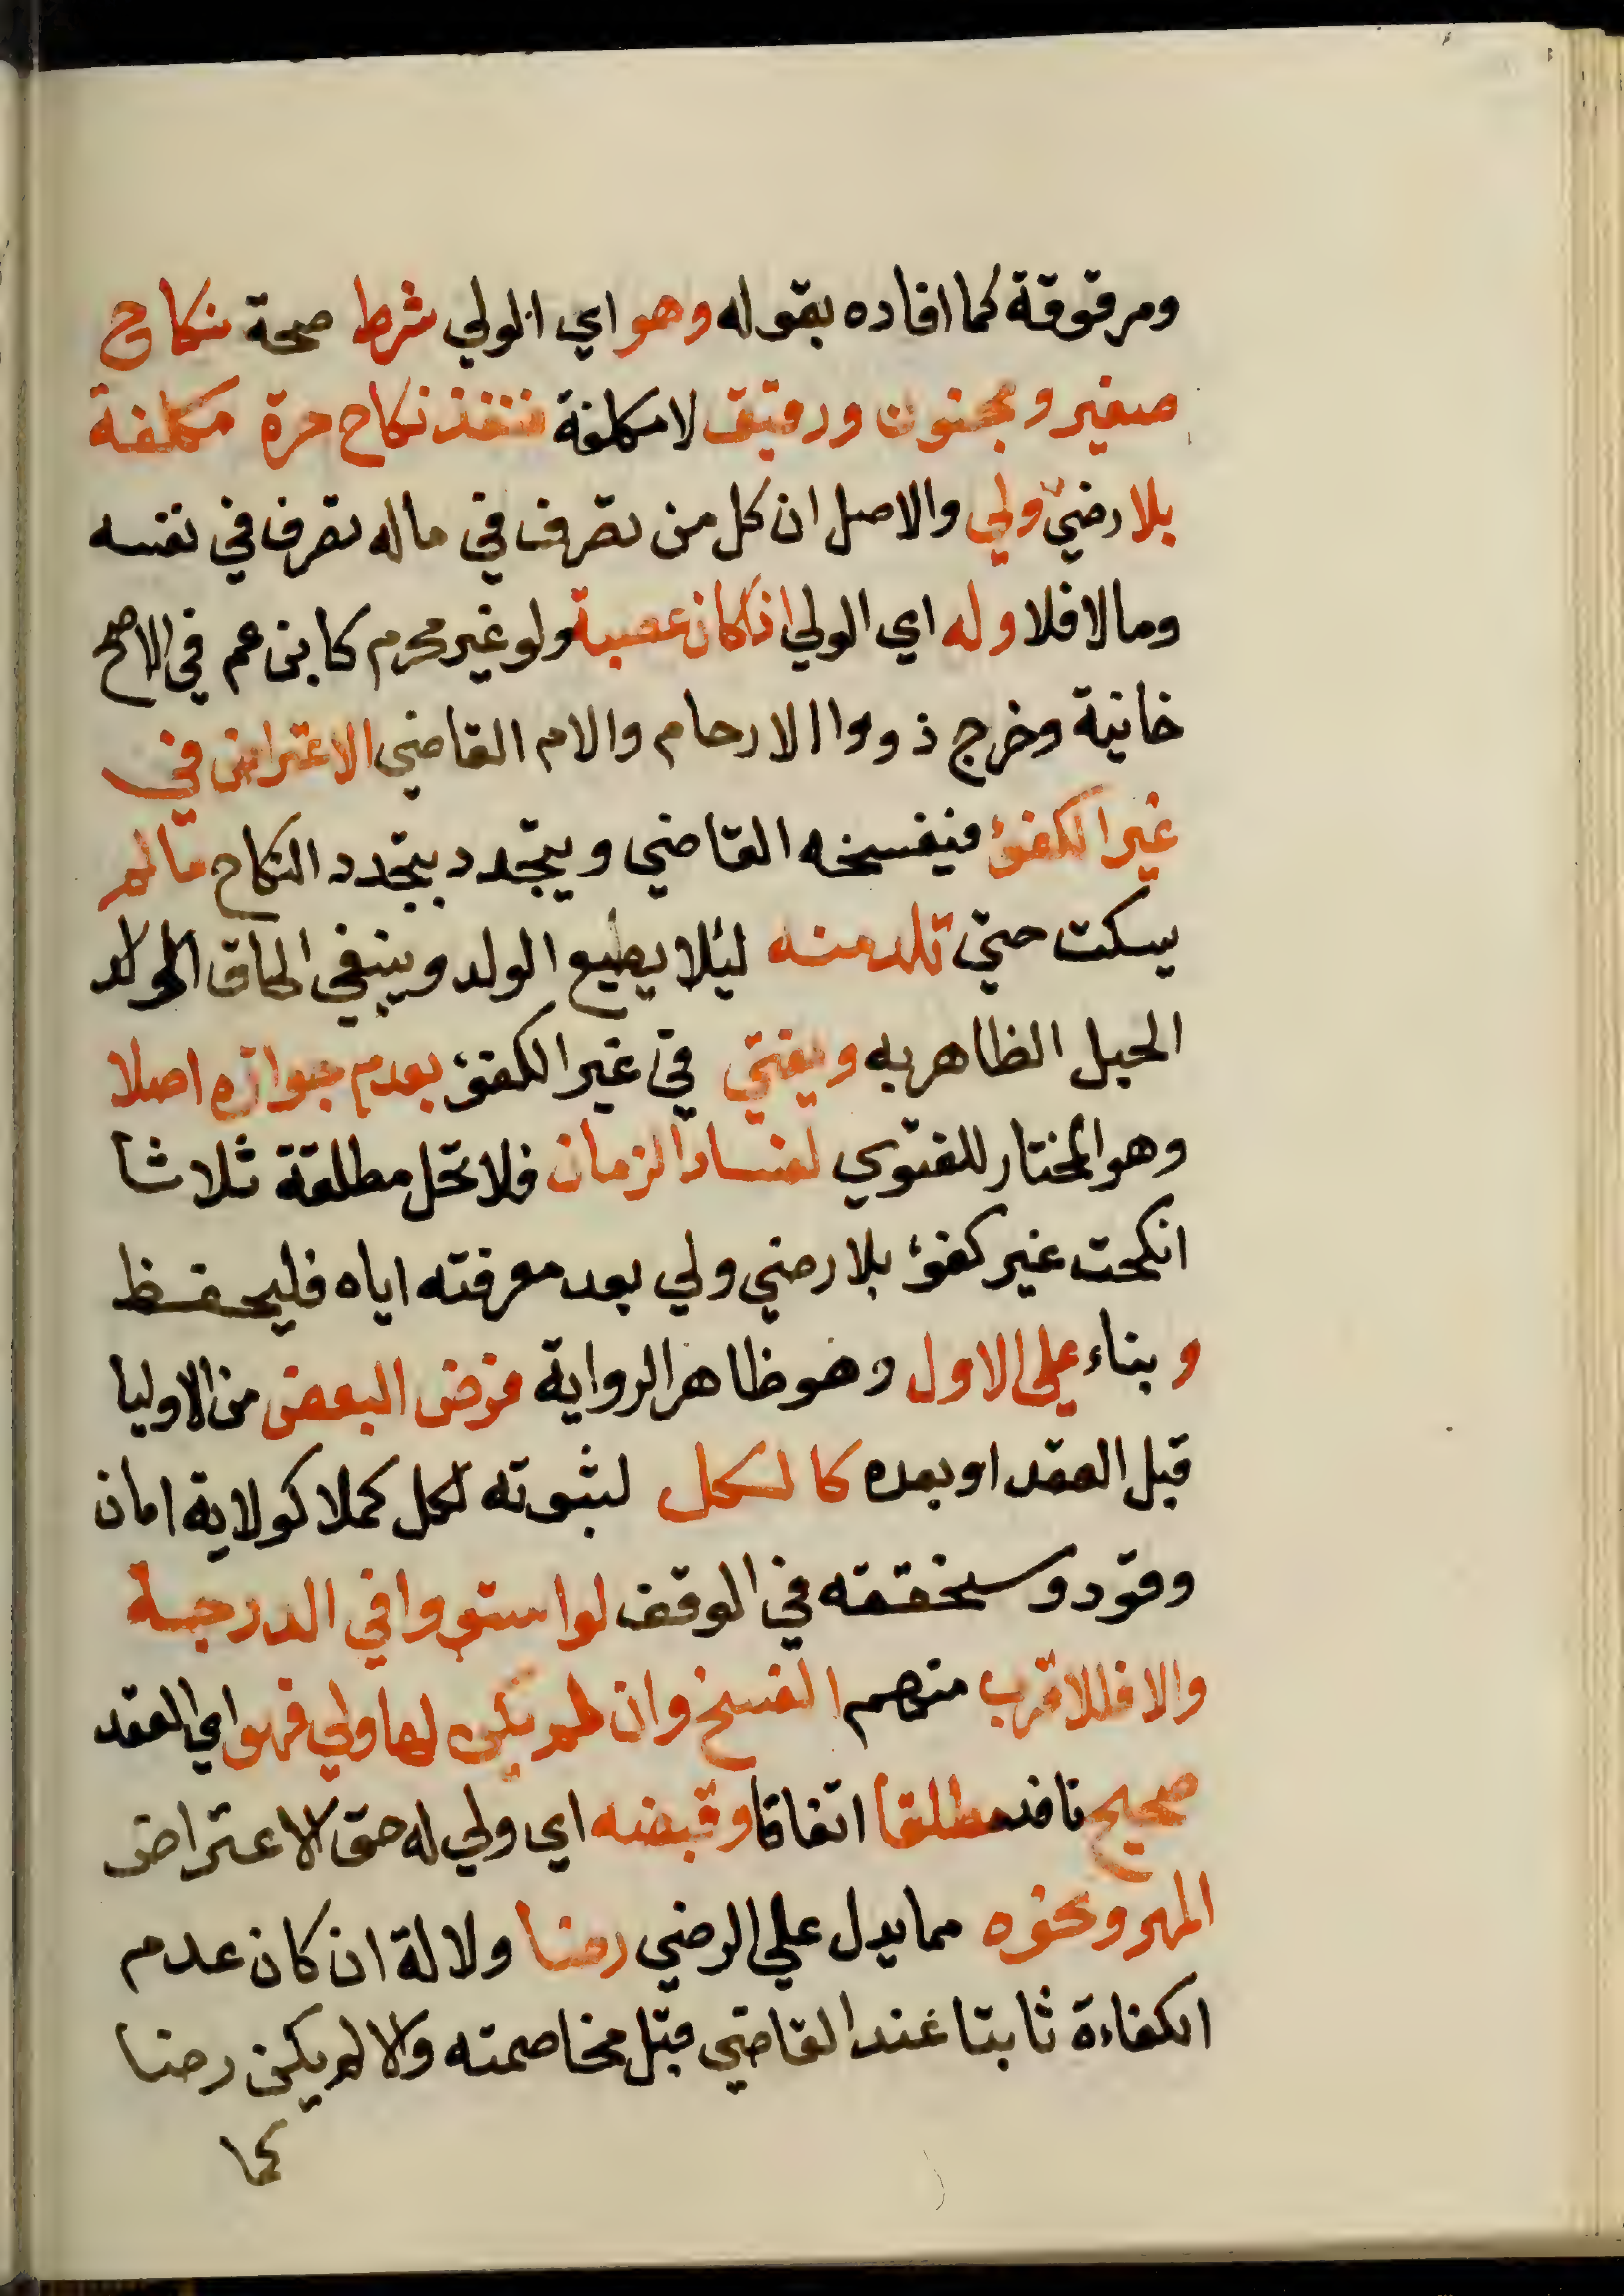 ومرقوقة كما افاده بقوله وهو اي الولي شرط صحة نكاح
صغير ومجنون ورقيق لا مكلفة فنفذ نكاح حرة مكلفة
بلا رضي ولي والاصل ان كل من تصرف في ماله تصرف في نفسه
وما لا فلا وله اي الولي اذا كان عصبة ولو غير محرم كابن عم في الاصح
خانية وخرج ذووا الارحام والام القاضي الاعتراض في
غير الكفؤ فيفسخه القاضي ويتجدد بتجدد النكاح ما لم
يسكت حتي تلد منه ليئلا يضيع الولد وينبغي الحاق
الحبل الظاهر به ويفتي في غير الكفؤ بعدم جوازه اصلا
وهو المختار للفتوي لفساد الزمان فلا تحل مطلقة ثلاثا
انكحت غير كفؤ بلا رضي ولي بعد معرفته اياه فليحفظ
وبناء علي الاول وهو ظاهر الرواية فرضي البعض من الاوليا
قبل العقد او بعده كالكل لثبوته لكل كملا كولاية امان
وقود وسنحققه في الوقف لو استووا في الدرجة
والا فللاقرب منهم الفسخ وان لم يكن لها ولي فهو اي العقد
صحيح نافذ مطلقا اتفاقا وقبضه اي ولي له حق الاعتراض
المهر ونحوه مما يدل علي الرضي رضا ولالة ان كان عدم
الكفاءة ثابتا عند القاضي قبل مخاصمته والا لم يكن رضا
كما